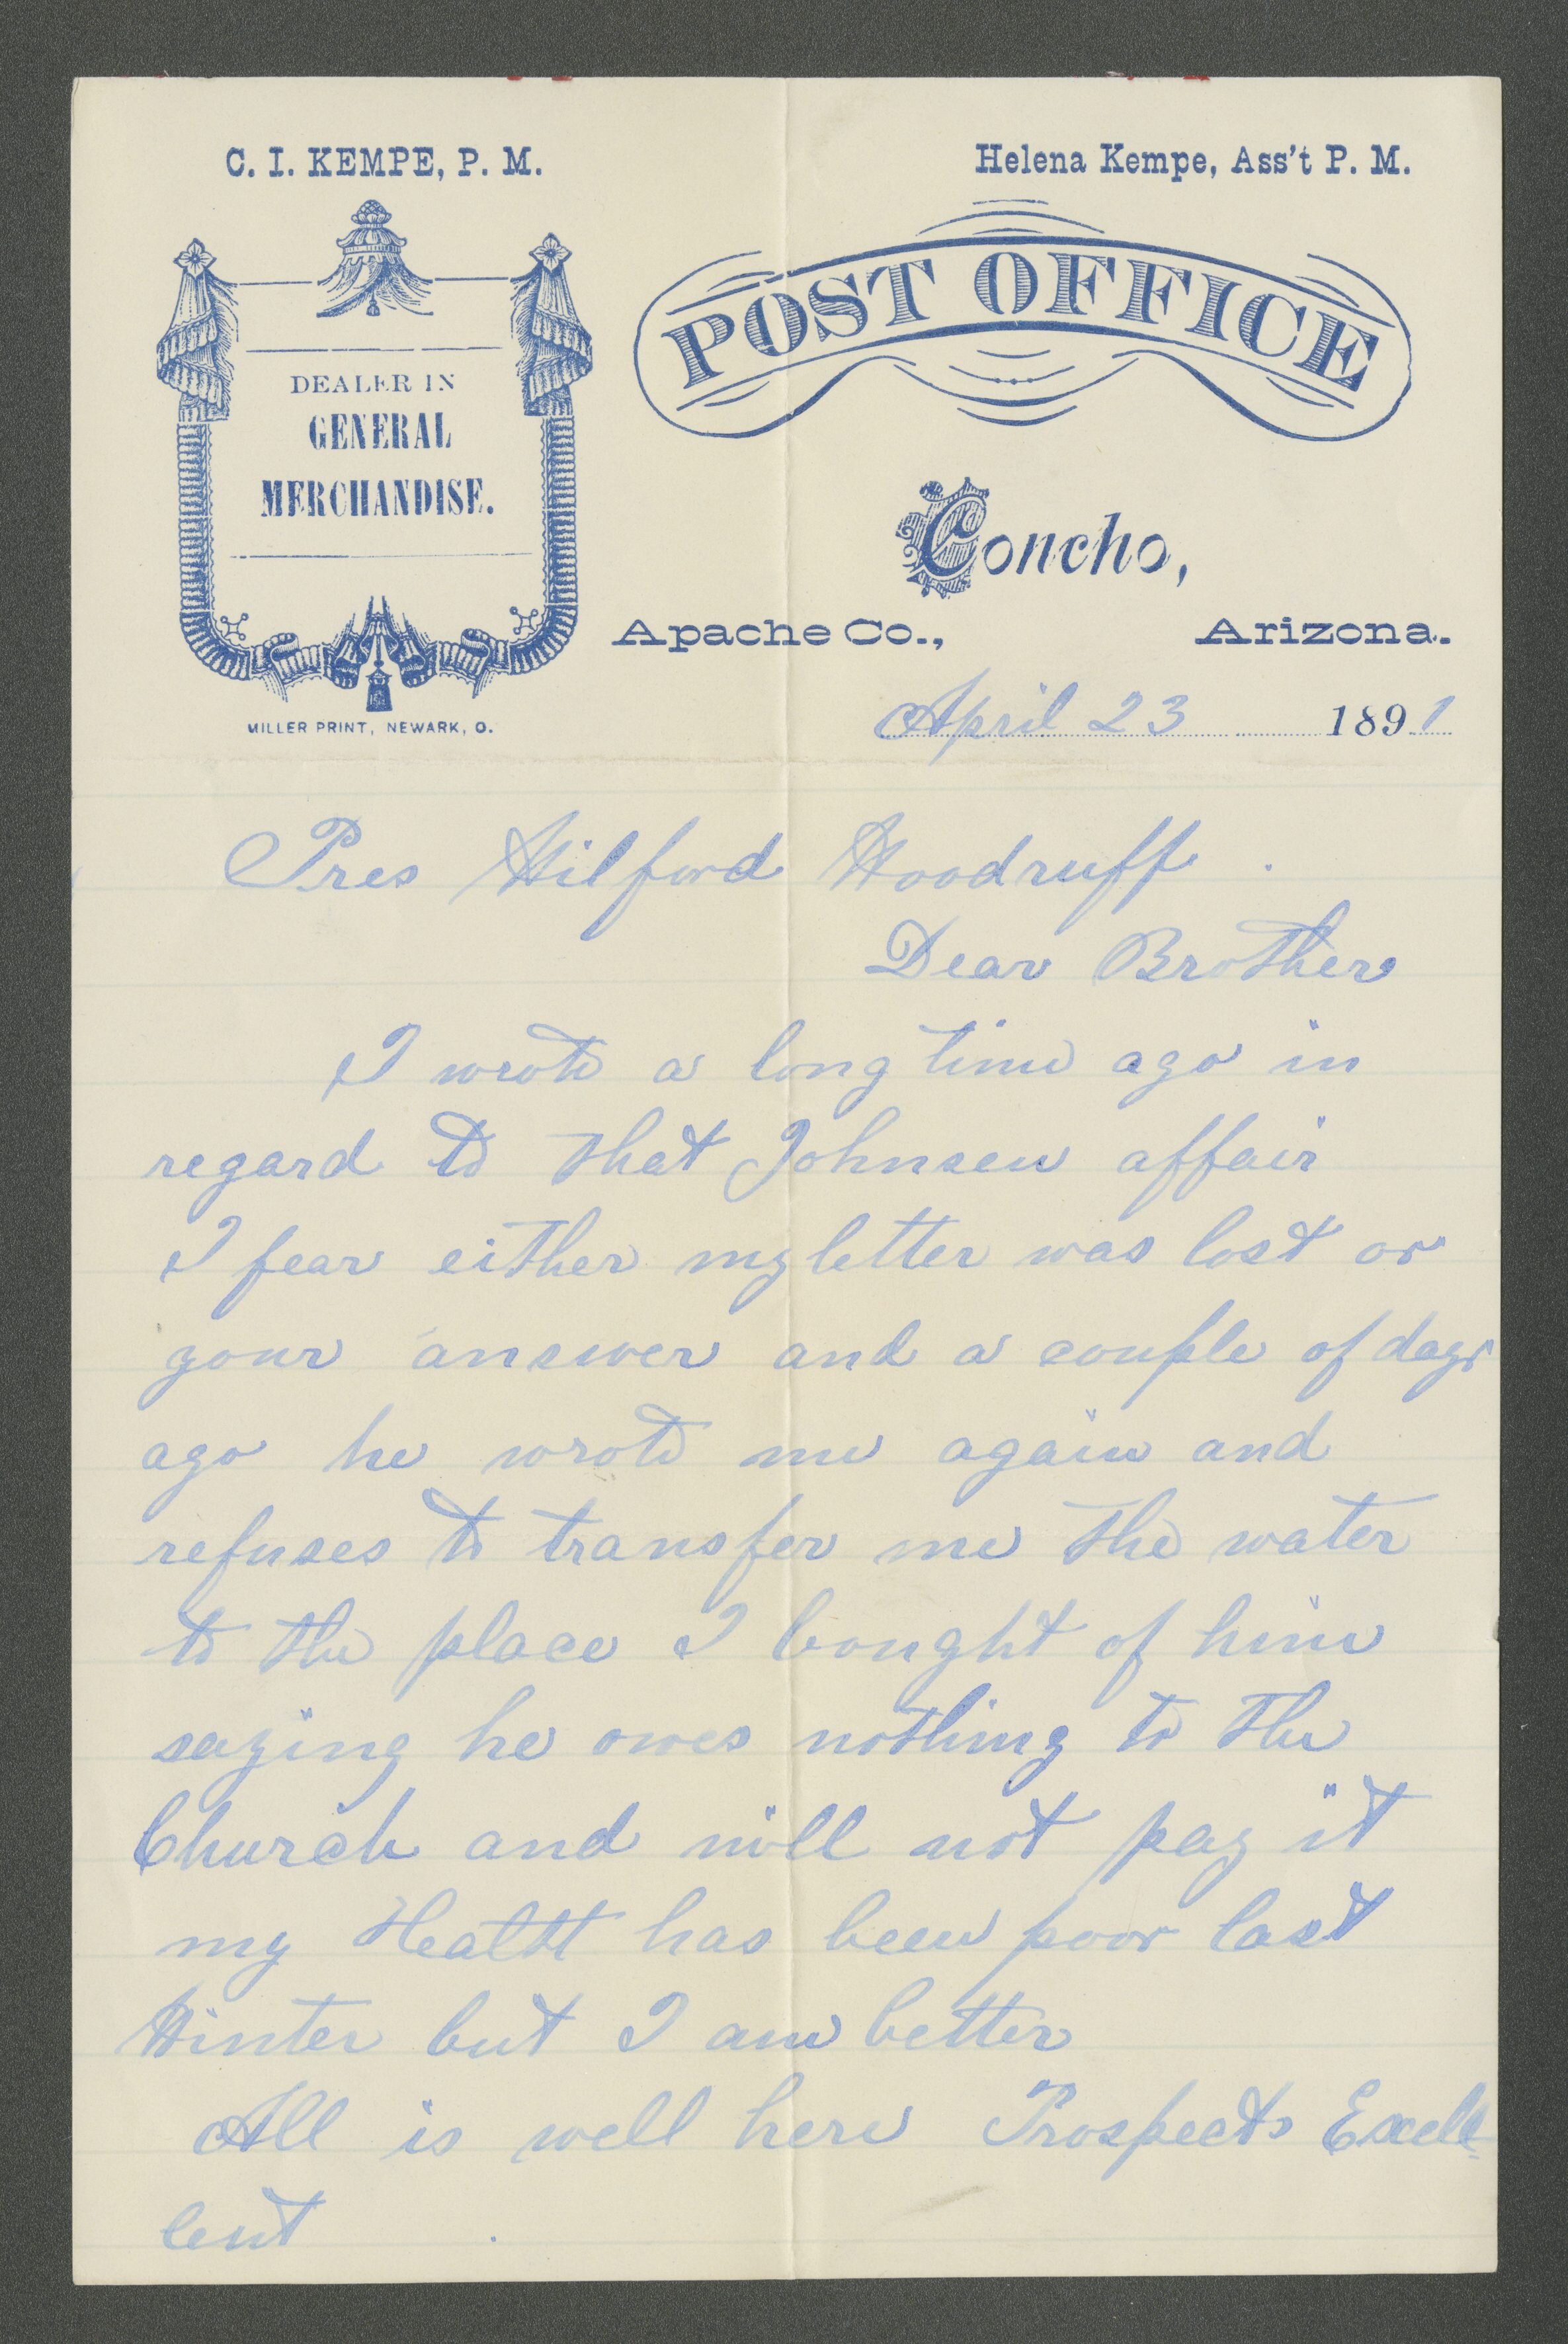 C. I. KEMPE, P. M.
Helena Kempe, Ass't P. M.
DEALER IN
GENERAL
MERCHANDISE.
MILLER PRINT, NEWARK, O.
POST OFFICE
Concho,
Apache Co., Arizona.
April 23 1891
Pres Wilford Woodruff.
Dear Brother
I wrote a long time ago in
regard to that Johnsen affair
I fear either my letter was lost or
your answer and a couple of days
ago he wrote me again and
refuses to transfer me the water
to the place I bought of him
saying he owes nothing to the
Church and will not pay it
my Health has been poor last
Winter but I am better
All is well here Prospects Excell
lent.